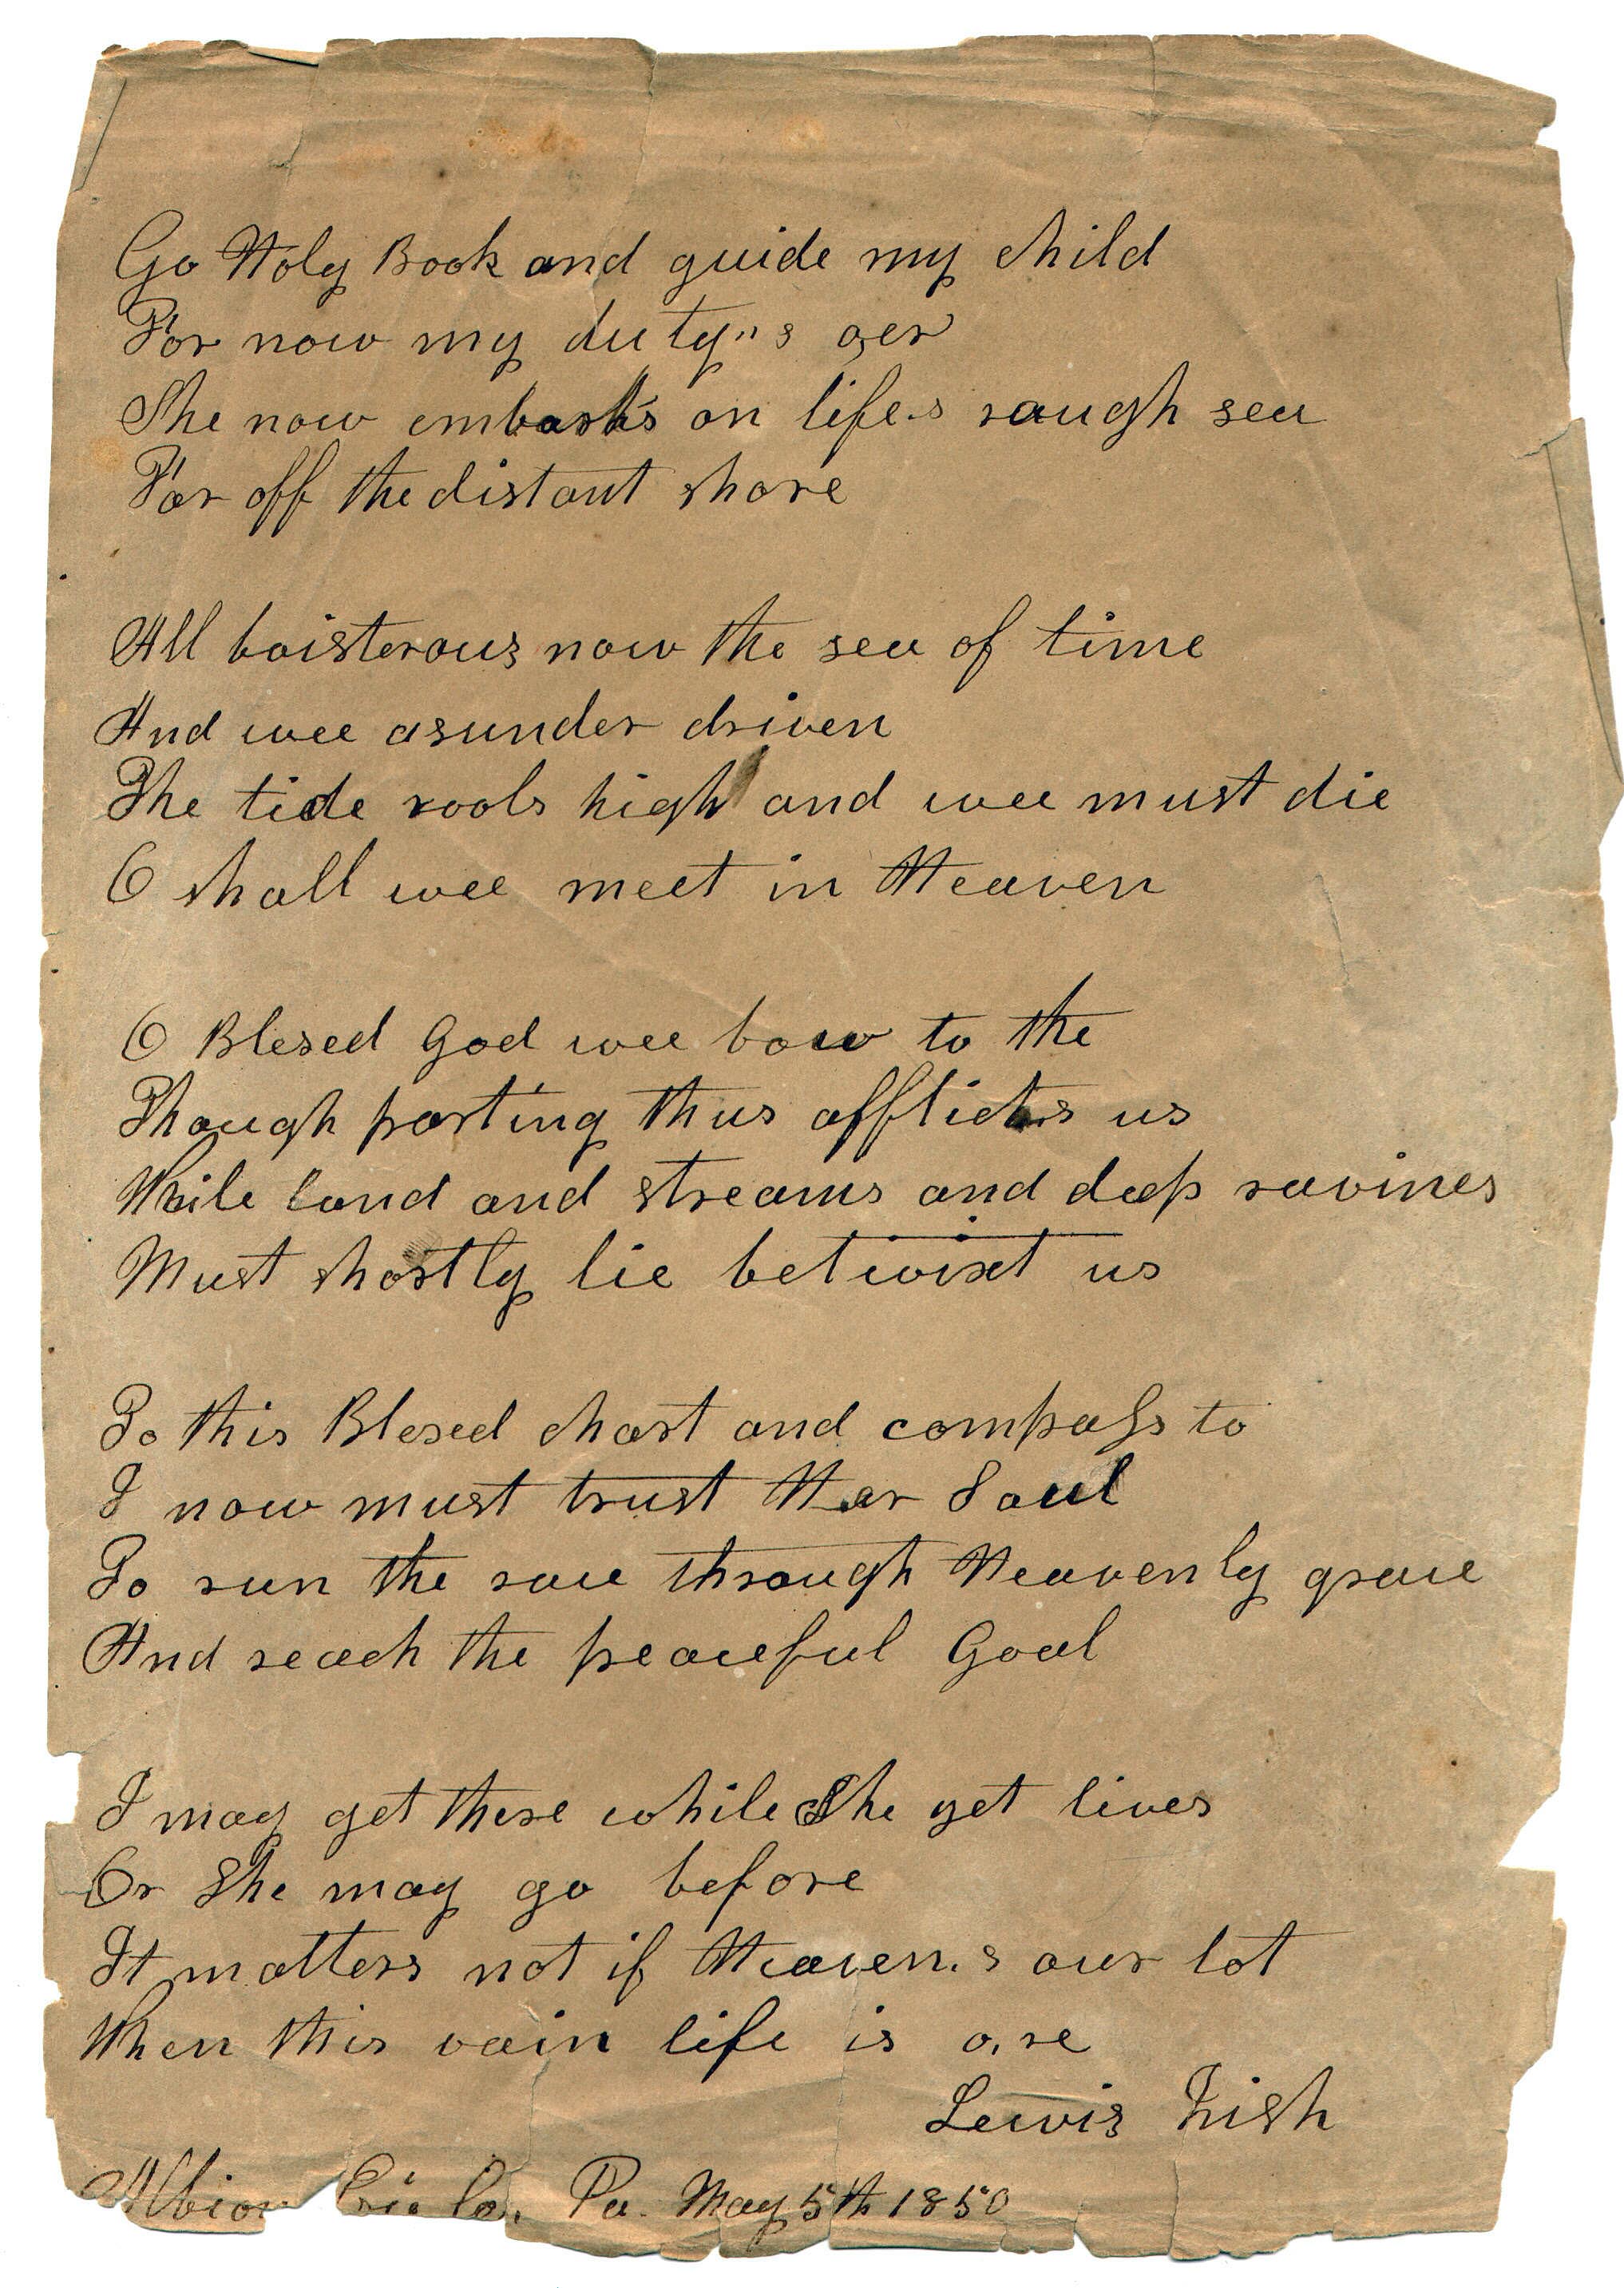 Go Holy Book and guide my child
For now my duty,,s oer
She now embark's on life.s rough sea
Far off the distant shore
All boisterous now the sea of time
And wee asunder driven
The tide rools high and wee must die
O shall wee meet in Heaven
O Blesed God wee bow to the
Though parting thus afflicts us
While land and streams and deep ravines
Must shortly lie betwixt us
To this Blesed chart and compass to
I now must trust Her Soul
To run the race through Heavenly grace
And reach the peaceful Goal
I may get there while She yet lives
Or She may go before
It matters not if Heaven.s our lot
When this vain life is o,re
Lewis
Albion Erie Co. Pa. May 5th 1850